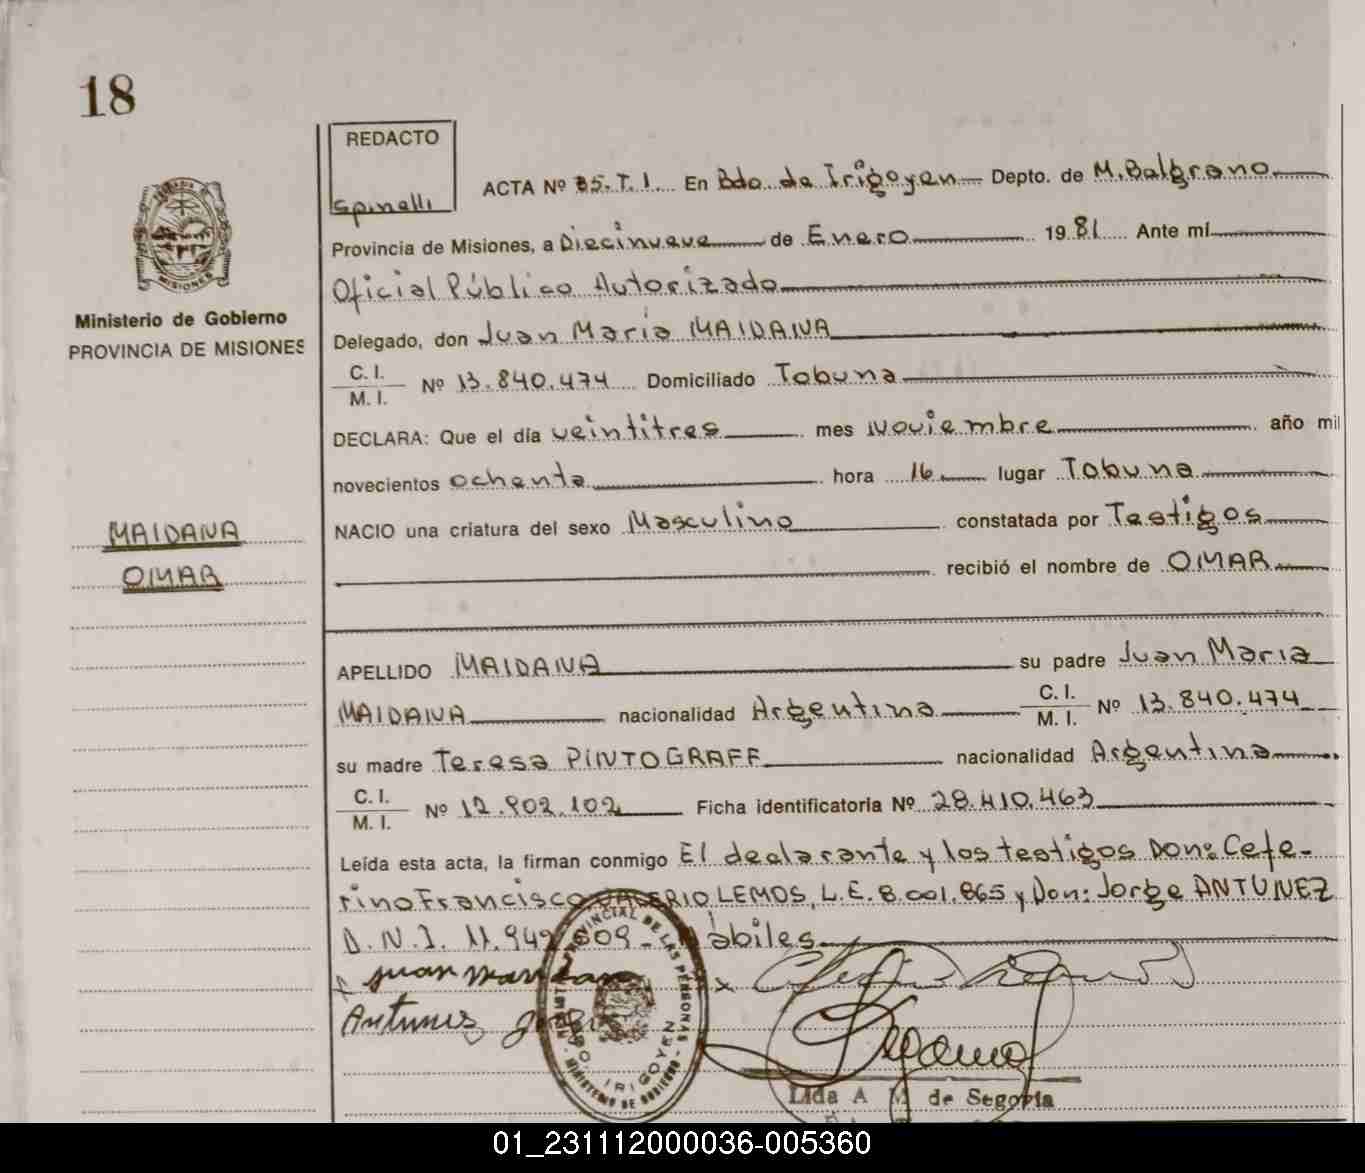 18
REDACTO
Spinelli
ACTA Nº 35.T.I. En Bdo. de Irigoyen Depto. de M. Balgrano
Provincia de Misiones, a Diecinueve de Enero 1981 Ante mí
Oficial Público Autorizado
MISIONES
Ministerio de Gobierno
PROVINCIA DE MISIONES
Delegado, don Juan María MAIDANA
C. I.
M. I. Nº 13.840.474 Domiciliado Tobuna
DECLARA: Que el día veintitres mes Noviembre año mil
novecientos ochenta hora 16 lugar Tobuna
NACIO una criatura del sexo Masculino constatada por Testigos
MAIDANA
OMAR
recibió el nombre de OMAR
APELLIDO MAIDANA su padre Juan Maria
MAIDANA nacionalidad Argentina C. I. M. I. Nº 13.840.474
su madre Teresa PINTOGRAFF nacionalidad Argentina
C. I.
M. I. Nº 12.902.102 Ficha identificatoria Nº 28.410.463
Leída esta acta, la firman conmigo El declarante y los testigos Don: Cefe-
rino Francisco VALERIO LEMOS, L.E. 8.001.865 y Don: Jorge ANTUNEZ
D.N.I. 11.942.609 - Hábiles
Juan
Antunes Jorge
PROVINCIAL DE LAS PERSONAS
BDO. IRIGOYEN
MINISTERIO DE GOBIERNO
Lida A M de Segovia
01_231112000036-005360